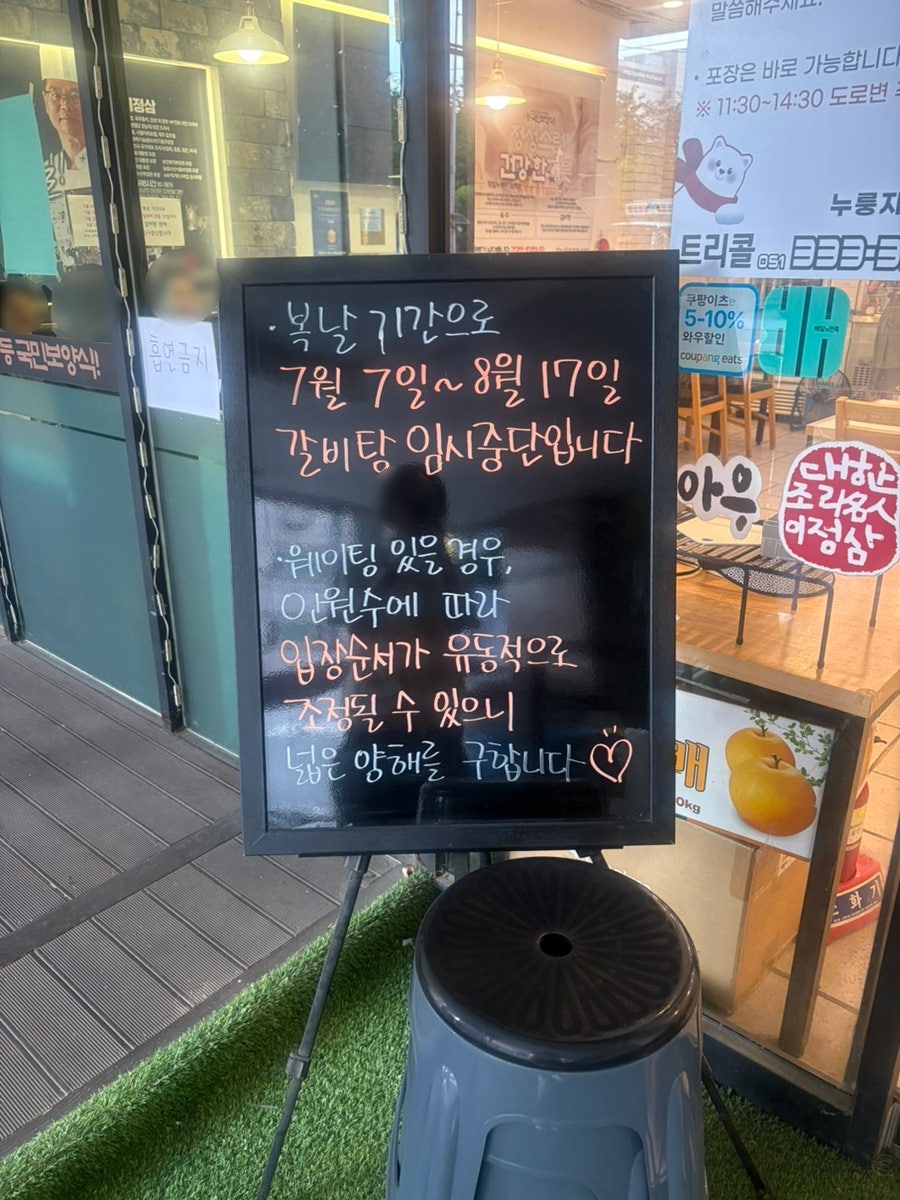 말씀해주세요.
· 포장은 바로 가능합니다
※ 11:30~14:30 도로변
누룽지
트리콜 051 333-3
쿠팡이츠만
5-10%
와우할인
coupang eats
배
배달의민족
건강한
이정삼
흡연금지
등 국민보양식!
· 복날 기간으로
7월 7일~ 8월 17일
갈비탕 임시중단입니다
· 웨이팅 있을 경우,
인원수에 따라
입장순서가 유동적으로
조정될 수 있으니
넓은 양해를 구합니다♡
아우
대한
조리명人
이정삼
배
0kg
소화기